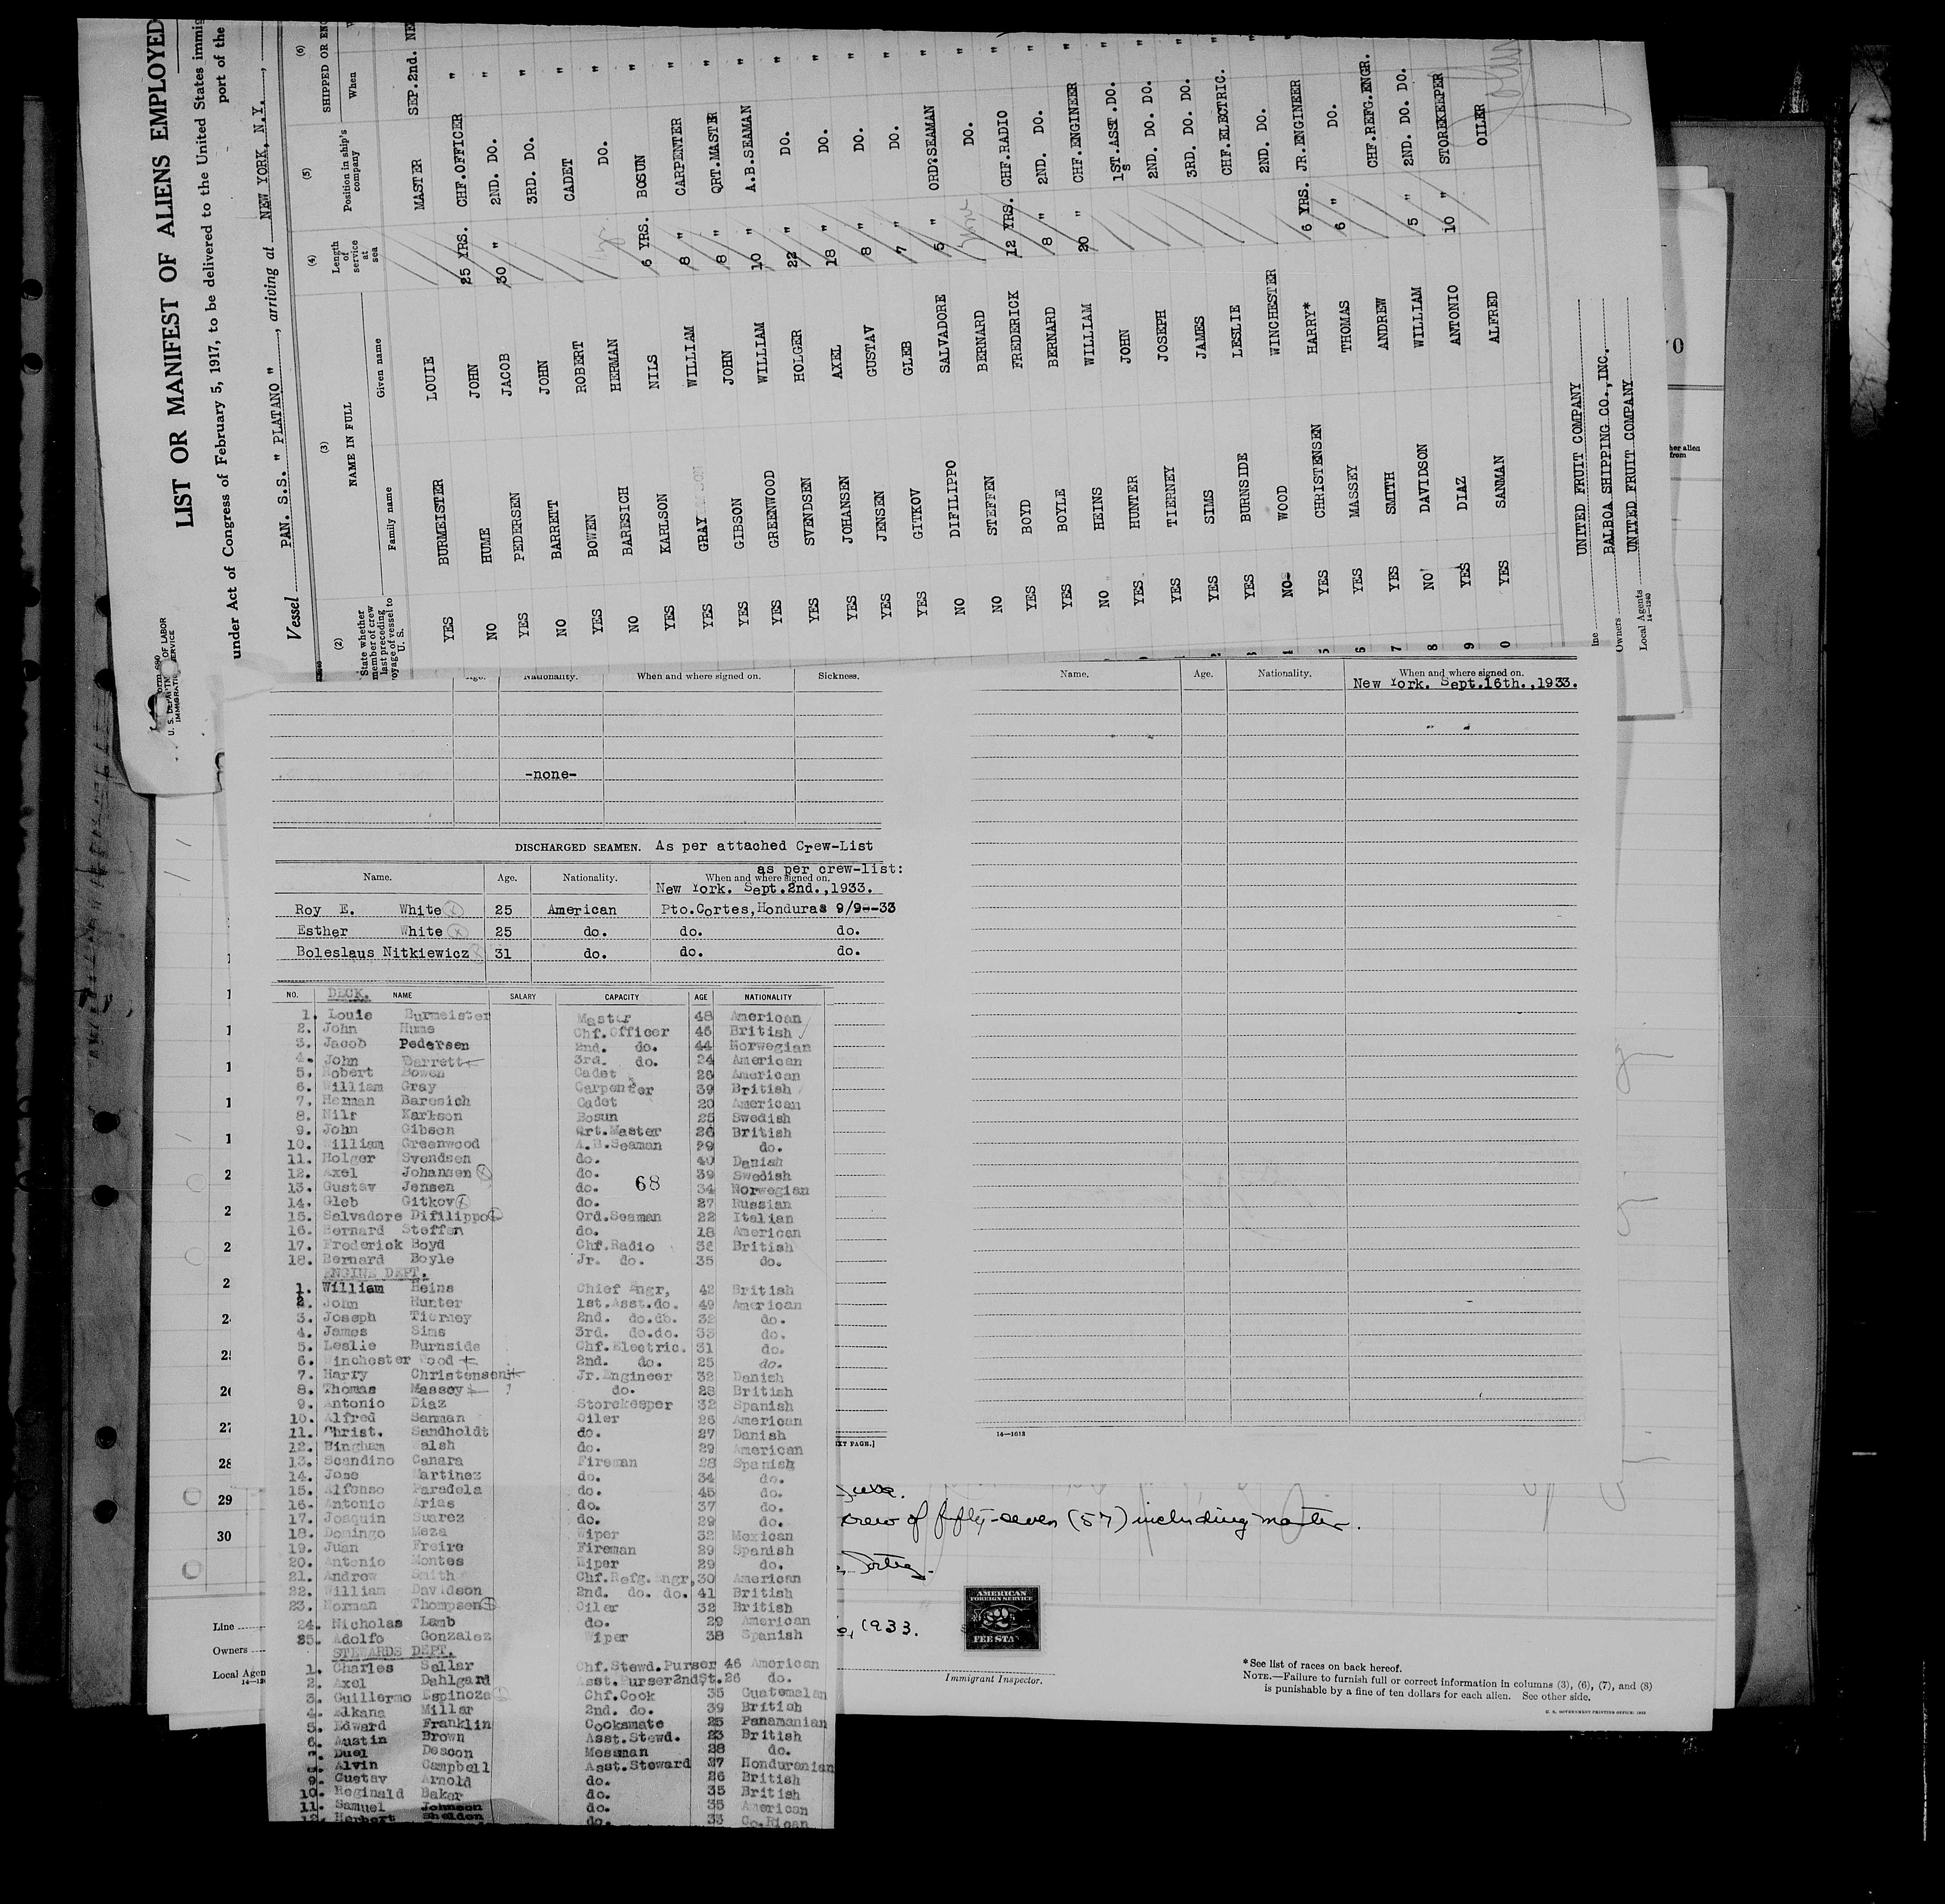 LIST OR MANIFEST OF ALIENS EMPLOYED
under Act of Congress of February 5, 1917, to be delivered to the United States immig
port of the
Vessel PAN. S.S. " PLATANO ", arriving at NEW YORK, N.Y.,
U. S. DEPARTM OF LABOR
(2) (3) (4) (5) (6)
State whether member of crew last preceding voyage of vessel to U. S.
NAME IN FULL
Family name Given name
Length of service at sea
Position in ship's company
SHIPPED OR ENG
When
YES BURMEISTER LOUIE MASTER SEP.2nd. NE
NO HUME JOHN 25 YRS. CHF.OFFICER "
YES PEDERSEN JACOB 30 " 2ND. DO. "
NO BARRETT JOHN 3RD. DO. "
YES BOWEN ROBERT CADET "
NO BARESICH HERMAN DO. "
YES KARLSON NILS 6 YRS. BOSUN "
YES GRAY WILLIAM 8 " CARPENTER "
YES GIBSON JOHN 8 " QRT.MASTER "
YES GREENWOOD WILLIAM 10 " A.B.SEAMAN "
YES SVENDSEN HOLGER 22 " DO. "
YES JOHANSEN AXEL 18 " DO. "
YES JENSEN GUSTAV 8 " DO. "
YES GITKOV GLEB 7 " DO. "
NO DIFILIPPO SALVADORE 5 " ORD.SEAMAN "
NO STEFFEN BERNARD DO. "
YES BOYD FREDERICK 12 YRS. CHF.RADIO "
YES BOYLE BERNARD 8 " 2ND. DO. "
NO HEINS WILLIAM 20 " CHF.ENGINEER "
YES HUNTER JOHN 1ST.ASST.DO. "
YES TIERNEY JOSEPH 2ND. DO. DO. "
YES SIMS JAMES 3RD. DO. DO. "
YES BURNSIDE LESLIE CHF.ELECTRIC. "
NO WOOD WINCHESTER 2ND. DO. "
5 YES CHRISTENSEN HARRY* 6 YRS. JR.ENGINEER
6 YES MASSEY THOMAS 6 " DO.
7 YES SMITH ANDREW CHF.REFG.ENGR.
8 NO DAVIDSON WILLIAM 5 " 2ND. DO. DO.
9 YES DIAZ ANTONIO 10 " STOREKEEPER
0 YES SANMAN ALFRED OILER
UNITED FRUIT COMPANY
Owners BALBOA SHIPPING CO.,INC.
Local Agents UNITED FRUIT COMPANY
14—1240
Age. Nationality. When and where signed on. Sickness.
-none-
Name. Age. Nationality. When and where signed on.
New York. Sept.16th.,1933.
DISCHARGED SEAMEN. As per attached Crew-List
as per crew-list:
Name. Age. Nationality. When and where signed on.
New York. Sept.2nd.,1933.
Roy E. White 25 American Pto.Cortes,Honduras 9/9--33
Esther White 25 do. do. do.
Boleslaus Nitkiewicz 31 do. do. do.
NO. DECK. NAME SALARY CAPACITY AGE NATIONALITY
1. Louie Burmeister Master 48 American
2. John Hume Chf.Officer 45 British
3. Jacob Pedersen 2nd. do. 44 Norwegian
4. John Barrett 3rd. do. 24 American
5. Robert Bowen Cadet 26 American
6. William Gray Carpenter 39 British
7. Herman Baresich Cadet 20 American
8. Nils Karlson Bosun 25 Swedish
9. John Gibson Qrt.Master 26 British
10. William Greenwood A.B.Seaman 29 do.
11. Holger Svendsen do. 40 Danish
12. Axel Johansen do. 39 Swedish
68
13. Gustav Jensen do. 34 Norwegian
14. Gleb Gitkov do. 27 Russian
15. Salvadore Difilippo Ord.Seaman 22 Italian
16. Bernard Steffen do. 18 American
17. Frederick Boyd Chf.Radio 36 British
18. Bernard Boyle Jr. do. 35 do.
ENGINE DEPT.
1. William Heins Chief Engr, 42 British
2. John Hunter 1st.Asst.do. 49 American
3. Joseph Tierney 2nd. do.do. 32 do.
4. James Sims 3rd. do.do. 35 do.
5. Leslie Burnside Chf.Electric. 31 do.
6. Winchester Wood 2nd. do. 25 do.
7. Harry Christensen Jr.Engineer 32 Danish
8. Thomas Massey do. 28 British
9. Antonio Diaz Storekeeper 32 Spanish
10. Alfred Sanman Oiler 26 American
11. Christ. Sandholdt do. 27 Danish
12. Bingham Walsh do. 29 American
13. Scandino Canara Fireman 28 Spanish
14. Jose Martinez do. 34 do.
15. Alfonso Paradela do. 45 do.
16. Antonio Arias do. 37 do.
17. Joaquin Suarez do. 29 do.
18. Domingo Meza Wiper 32 Mexican
19. Juan Freire Fireman 29 Spanish
20. Antonio Montes Wiper 29 do.
21. Andrew Smith Chf.Refg.Engr, 30 American
22. William Davidson 2nd. do. do. 41 British
23. Norman Thompsen Oiler 32 British
24. Nicholas Lamb do. 29 American
25. Adolfo Gonzalez Wiper 38 Spanish
STEWARDS DEPT.
1. Charles Sellar Chf.Stewd.Purser 46 American
2. Axel Dahlgard Asst.Purser2ndSt. 26 do.
3. Guillermo Espinoza Chf.Cook 35 Guatemalan
4. Elkana Millar 2nd. do. 39 British
5. Edward Franklin Cooksmate 25 Panamanian
6. Austin Brown Asst.Stewd. 23 British
7. Duel Deacon Messman 28 do.
8. Alvin Campbell Asst.Steward 27 Honduranian
9. Gustav Arnold do. 26 British
10. Reginald Baker do. 35 British
11. Samuel Johnson do. 35 American
12. Herbert Sheldon do. 33 Co.Rican
14—1613
EXT PAGE.]
28
29
30
crew of fifty-seven (57) including master.
1933.
AMERICAN
FOREIGN SERVICE
$2
FEE STA
Line
Owners
Local Agen
Immigrant Inspector.
*See list of races on back hereof.
NOTE.—Failure to furnish full or correct information in columns (3), (6), (7), and (8)
is punishable by a fine of ten dollars for each alien. See other side.
U. S. GOVERNMENT PRINTING OFFICE: 1932